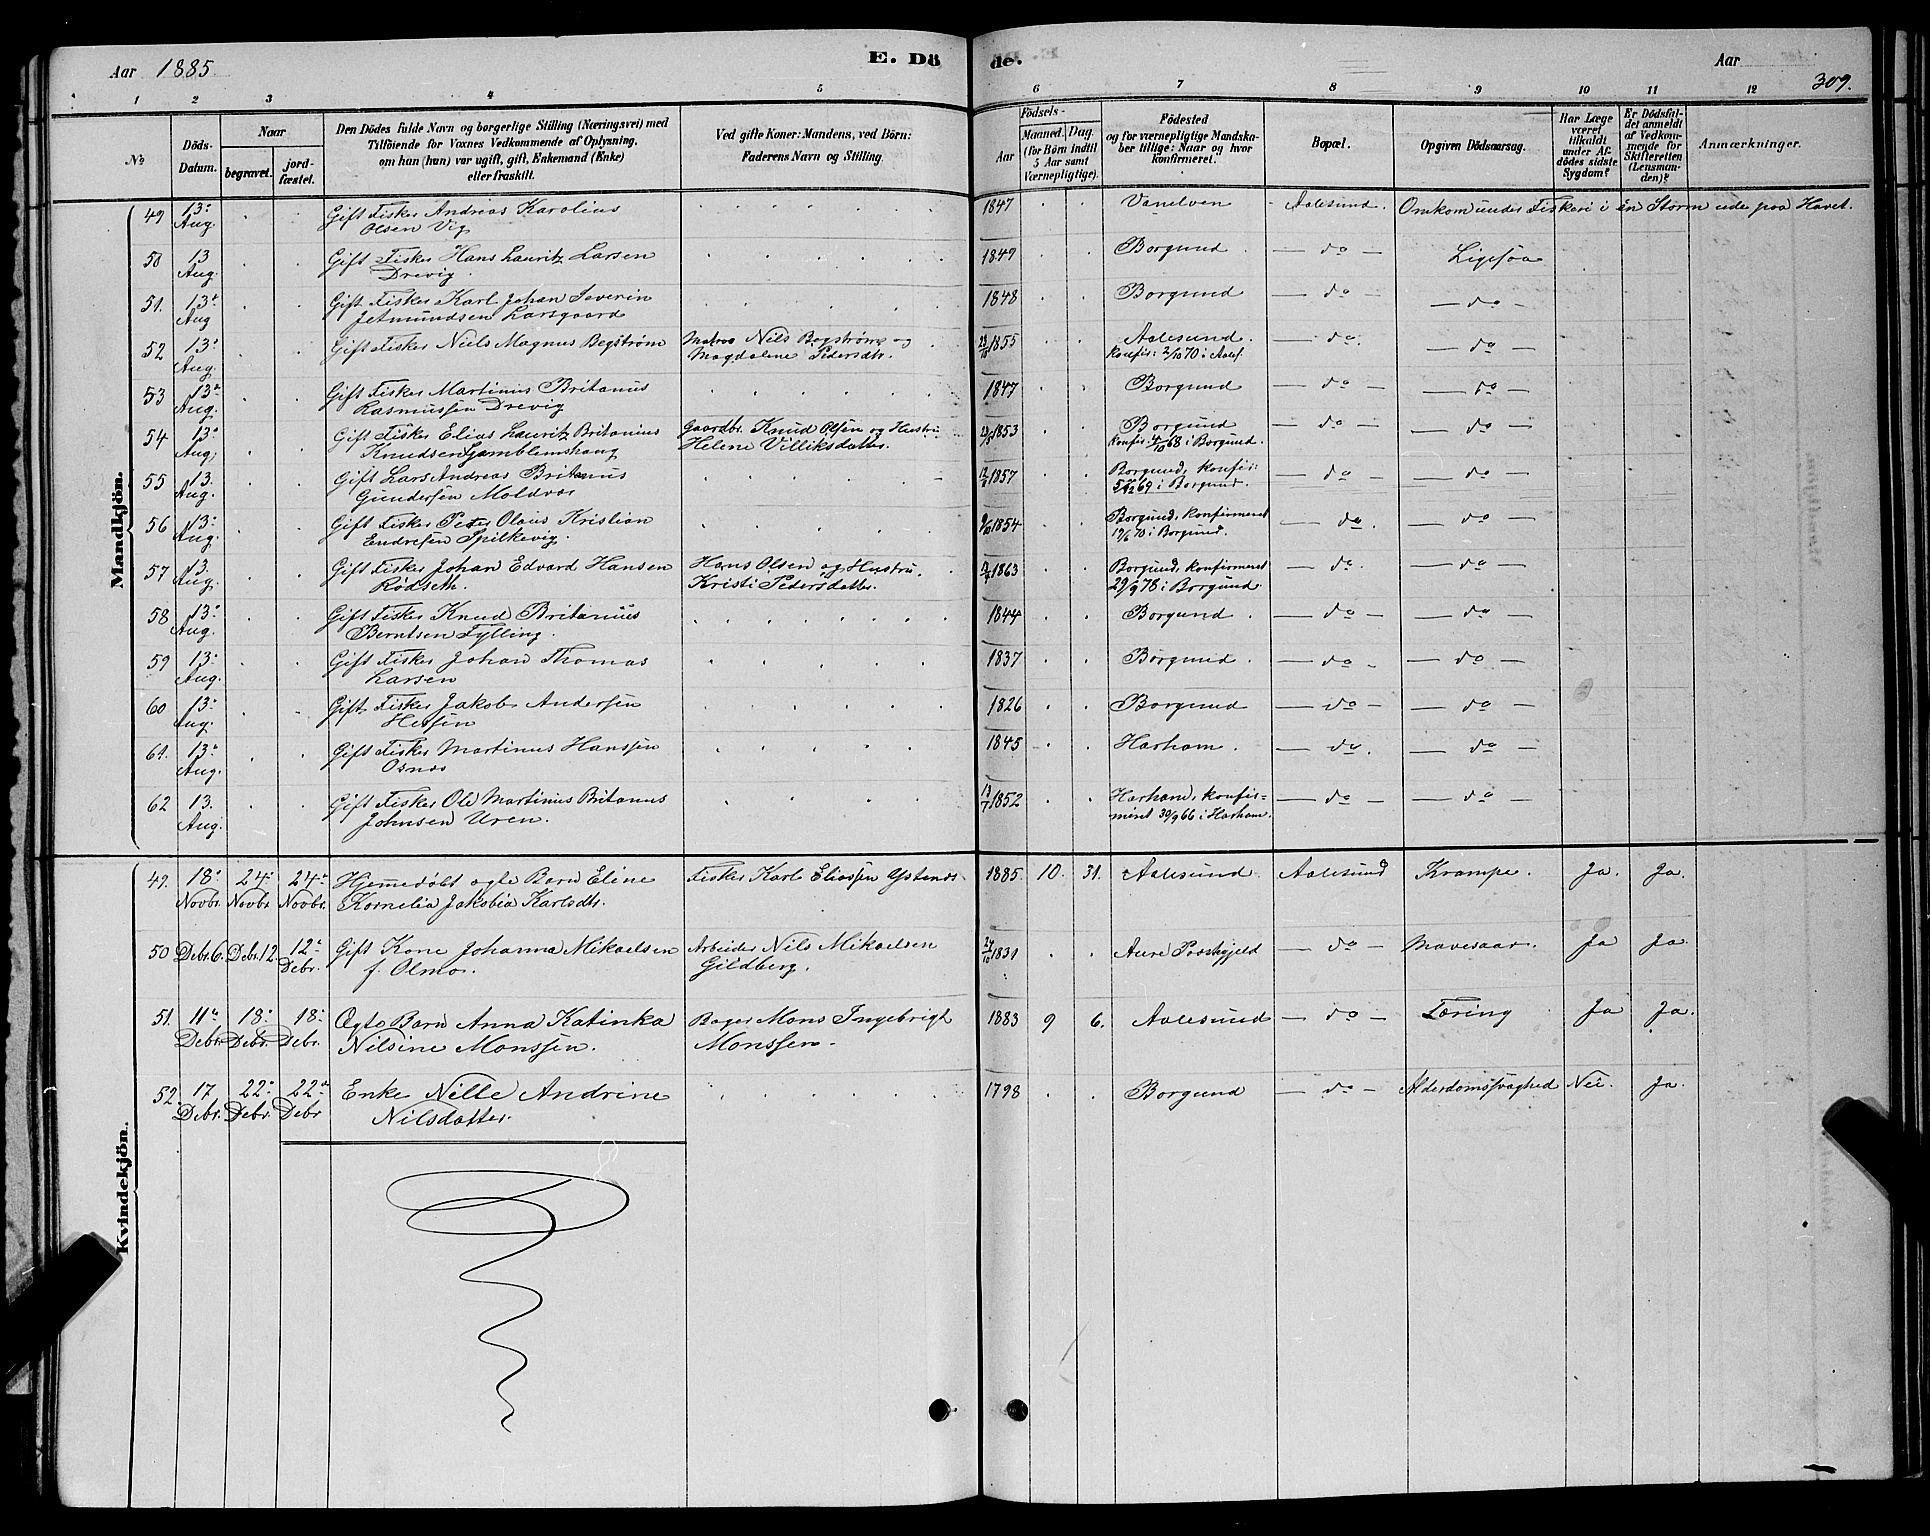 Aar 1885.
E. Dö
de.
Aar
309.
1 2 3 4 5 6 7 8 9 10 11 12
No
Döds-Datum.
Naar
begravet.
jord-fæstet.
Den Dödes fulde Navn og borgerlige Stilling (Næringsvei) med
Tilföiende for Voxnes Vedkommende af Oplysning,
om han (hun) var ugift, gift, Enkemand (Enke)
eller fraskilt.
Ved gifte Koner: Mandens, ved Börn:
Faderens Navn og Stilling.
Födsels-
Aar
Maaned. Dag.
(for Börn indtil
5 Aar samt
Værnepligtige).
Födested
og for værnepligtige Mandska-
ber tillige: Naar og hvor
konfirmeret.
Bopæl.
Opgiven Dödsaarsag.
Har Læge
været
tilkaldt
under Af-
dödes sidste
Sygdom?
Er Dödsfal-
det anmeldt
af Vedkom-
mende for
Skifteretten
(Lensman-
den)?
Anmærkninger.
Mandkjön.
49 13: Aug. Gift Fisker Andreas Karolius 1847 Vanelven Aalesund. Omkom under Fiskeri i en Storm ude paa Havet.
Olsen Vig
50 13 Aug. Gift Fisker Hans Lauritz Larsen 1849 Borgund do Ligesaa
Drevig.
51. 13: Aug Gift Fisker Karl Johan Severin 1848 Borgund do do
Jetmundsen Larsgaard
52 13: Aug. Gift Fisker Niels Magnus Begström Matros Nils Bogstrøm og 1855 Aalesund. do do
Magdalene Pedersdtr. Konfir: 2/10 70 i Aales.
53 13: Aug. Gift Fisker Martinus Britanus 1847 Borgund do do
Rasmussen Drevig
54 13: Aug. Gift Fisker Elias Lauritz Britanius Gaardbr. Knud Olsen og Hustru 1853 Borgund do do
Knudsen Gamblemshaug Helene Villiksdatter. Konfir: 4/10 68 i Borgund.
55 13. Aug. Gift Lars Andreas Britanus 1857 Borgund, konfir: do do
Gundersen Moldvær i Borgund.
56 13: Aug. Gift Fisker Peter Olaus Kristian 1854 Borgund, konfirmeret do. do
Endresen Spilkevig. 19/6 70 i Borgund.
57 13. Aug. Gift Fisker Johan Edvard Hansen Hans Olsen og Hustru 1863 Borgund, konfirmeret do. do
Rødseth. Kristi Pedersdatter. 29/9 78 i Borgund.
58 13: Aug. Gift Fisker Knud Britanius 1844 Borgund do do
Berntsen Fylling.
59 13: Aug. Gift Fisker Johan Thomas 1837 Borgund. do do
Larsen
60 13: Aug. Gift Fisker Jakob Andersen 1826 Borgund do do
Hessen
61. 13: Aug. Gift Fisker Martinus Hanssen 1845 Harham. do. do
Osnes
62 13. Aug. Gift Fisker Ole Martinus Britanus 13/7 1852 Harham, konfir= do do
Johnsen Uren. meret 30/9 66 i Harham.
Kvindekjön.
49. 18: Novbr. 24: Novbr. 24: Novbr. Hjemmedøbt ægte Barn Eline Fisker Karl Eliassen Ystenæs 1885. 10. 31. Aalesund. Aalesund Krampe. Ja. Ja.
Kornelia Jakobia Karlsdtr.
50 Debr. 6. Debr. 12. 12: Debr. Gift Kone Johanna Mikaelsen Arbeider Nils Mikaelsen 1831 Aure Præstegjeld do Mavesaar. Ja Ja.
f. Olmo. Gildberg.
51. 11: Debr. 18: Debr. 18: Debr. Ægte Barn Anna Katinka Bager Mons Ingebrigt 1883 9 6. Aalesund do Tæring Ja Ja.
Nilsine Monssen. Monssen.
52. 17 Debr. 22: Debr. 22: Debr Enke Nille Andrine 1798 Borgund do Alderdomssvaghed Nei. Ja.
Nilsdatter.